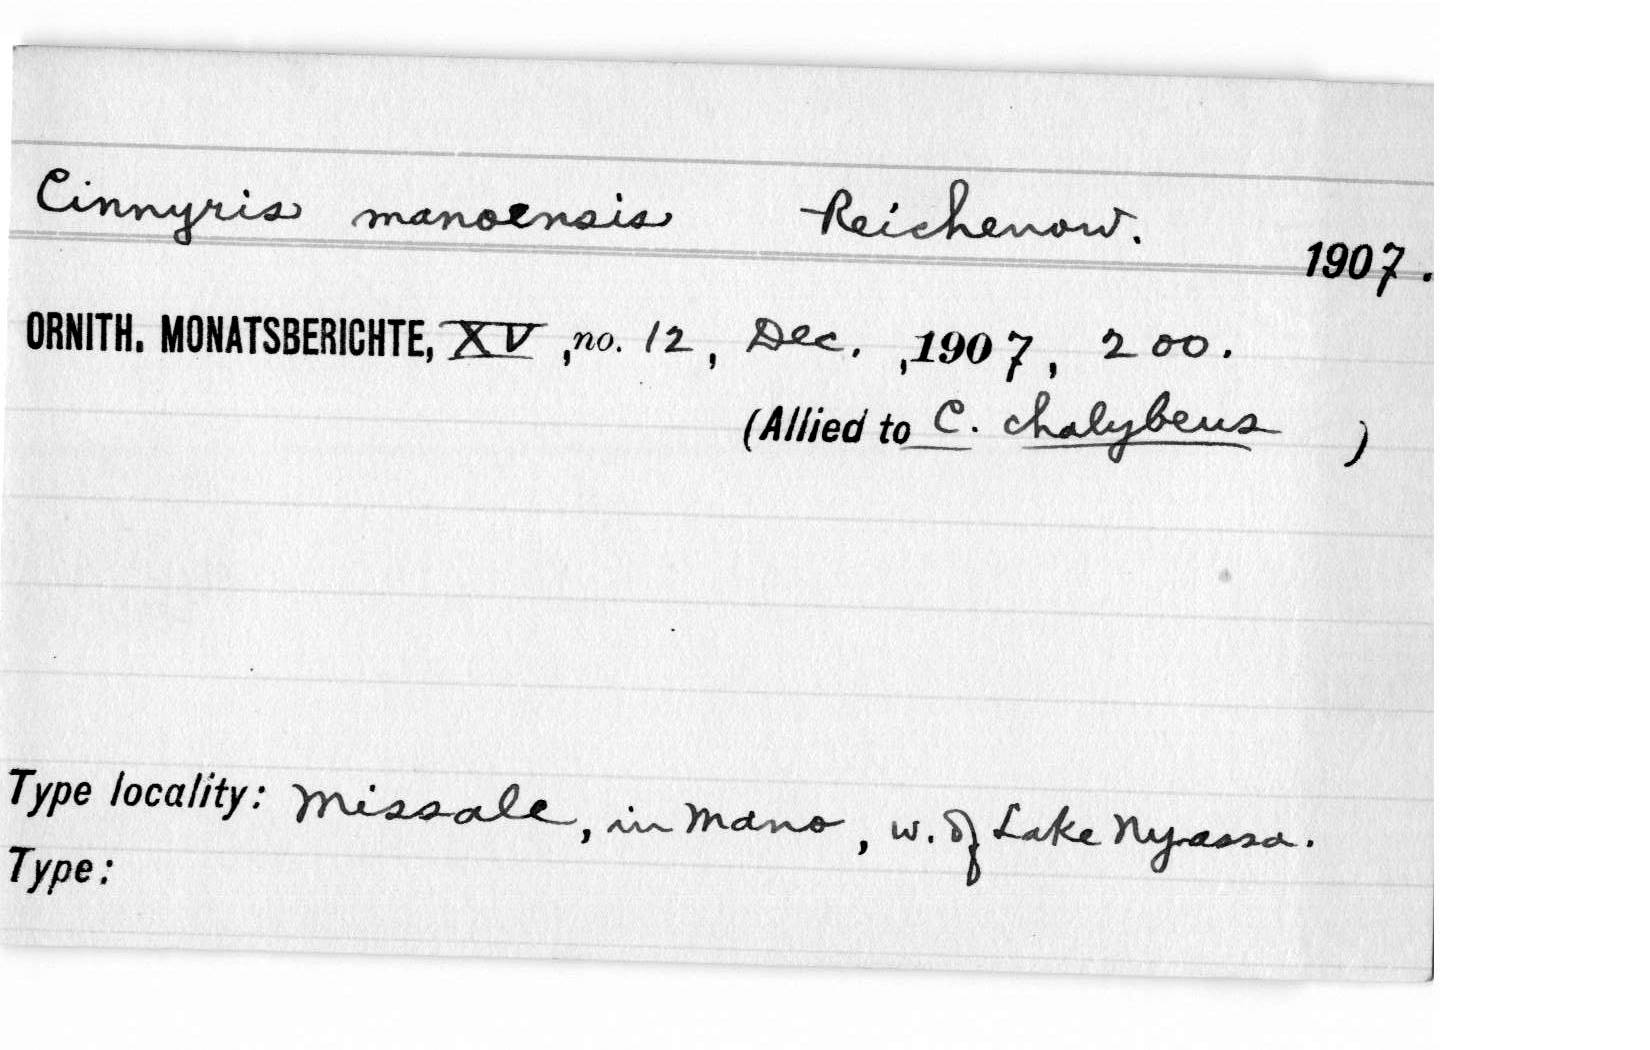 Cinnyris manoensis Reichenow.
1907.
ORNITH. MONATSBERICHTE, XV, no. 12, Dec., 1907, 200.
(Allied to C. chalybeus )
Type locality: Missale, in Mano, w. of Lake Nyassa.
Type: